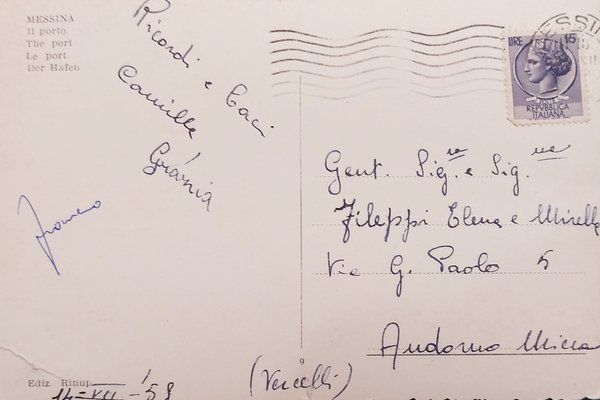 MESSINA
Il porto.
The port
Le port.
Der Hafen
Ricordi e baci
Camilla
Grània
Franco
Ediz. Rinup
14-VII-'58
9
MESSIN
LIRE 15
POSTE
REPVBBLICA
ITALIANA
Gent. Sig.re e Sig.ne
Fileppi Elena e Mirella
Via G. Paolo 5
Andorno Micca
(Vercelli)